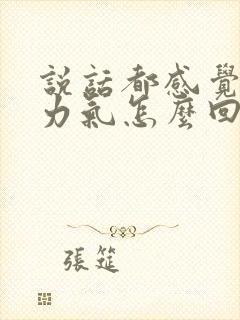 説話都感覺
力氣怎麼回
張筵